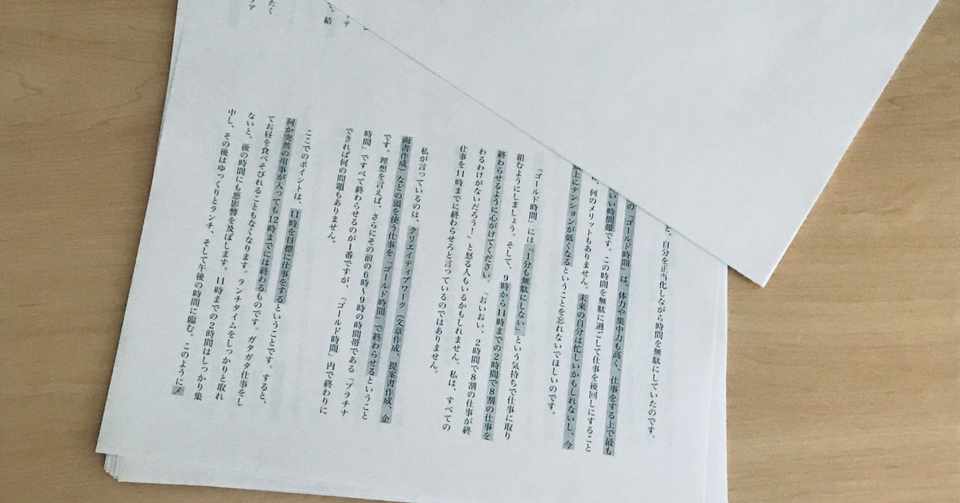 と、自分を正当化しながら時間を無駄にしていたのです。
の「ゴールド時間」は、体力や集中力も高く、仕事をする上で最も
いい時間帯です。この時間を無駄に過ごして仕事を後回しにすること
何のメリットもありません。未来の自分は忙しいかもしれないし、今
上にテンションが低くなるということを忘れないでほしいのです。
「ゴールド時間」には「1分も無駄にしない」という気持ちで仕事に取り
組むようにしましょう。そして、9時から11時までの2時間で8割の仕事を
終わらせるように心がけてください。「おいおい、2時間で8割の仕事が終
わるわけがないだろう！」と怒る人もいるかもしれません。私は、すべての
仕事を11時までに終わらせろと言っているのではありません。
私が言っているのは、クリエイティブワーク（文章作成、提案書作成、企
画書作成）などの頭を使う仕事を「ゴールド時間」で終わらせるということ
です。理想を言えば、さらにその前の6時、9時の時間帯である「プラチナ
時間」ですべて終わらせるのが1番ですが、「ゴールド時間」内で終わりに
できれば何の問題もありません。
ここでのポイントは、11時を目標に仕事をするということです。すると、
何か突然の用事が入っても12時までには終わるものです。ガタガタ仕事をし
てお昼を食べそびれることもなくなります。ランチタイムをしっかりと取れ
ないと、後の時間にも悪影響を及ぼします。11時までの2時間はしっかり集
中し、その後はゆっくりとランチ、そして午後の時間に臨む。このようにメ
、結
たく